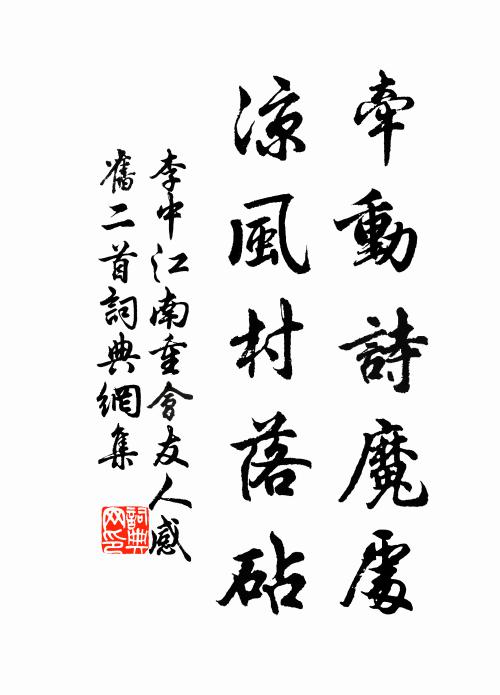 牽動詩魔處
涼風村落砧
李中江南重會友人感
舊二首詞典網集
詞典
网印